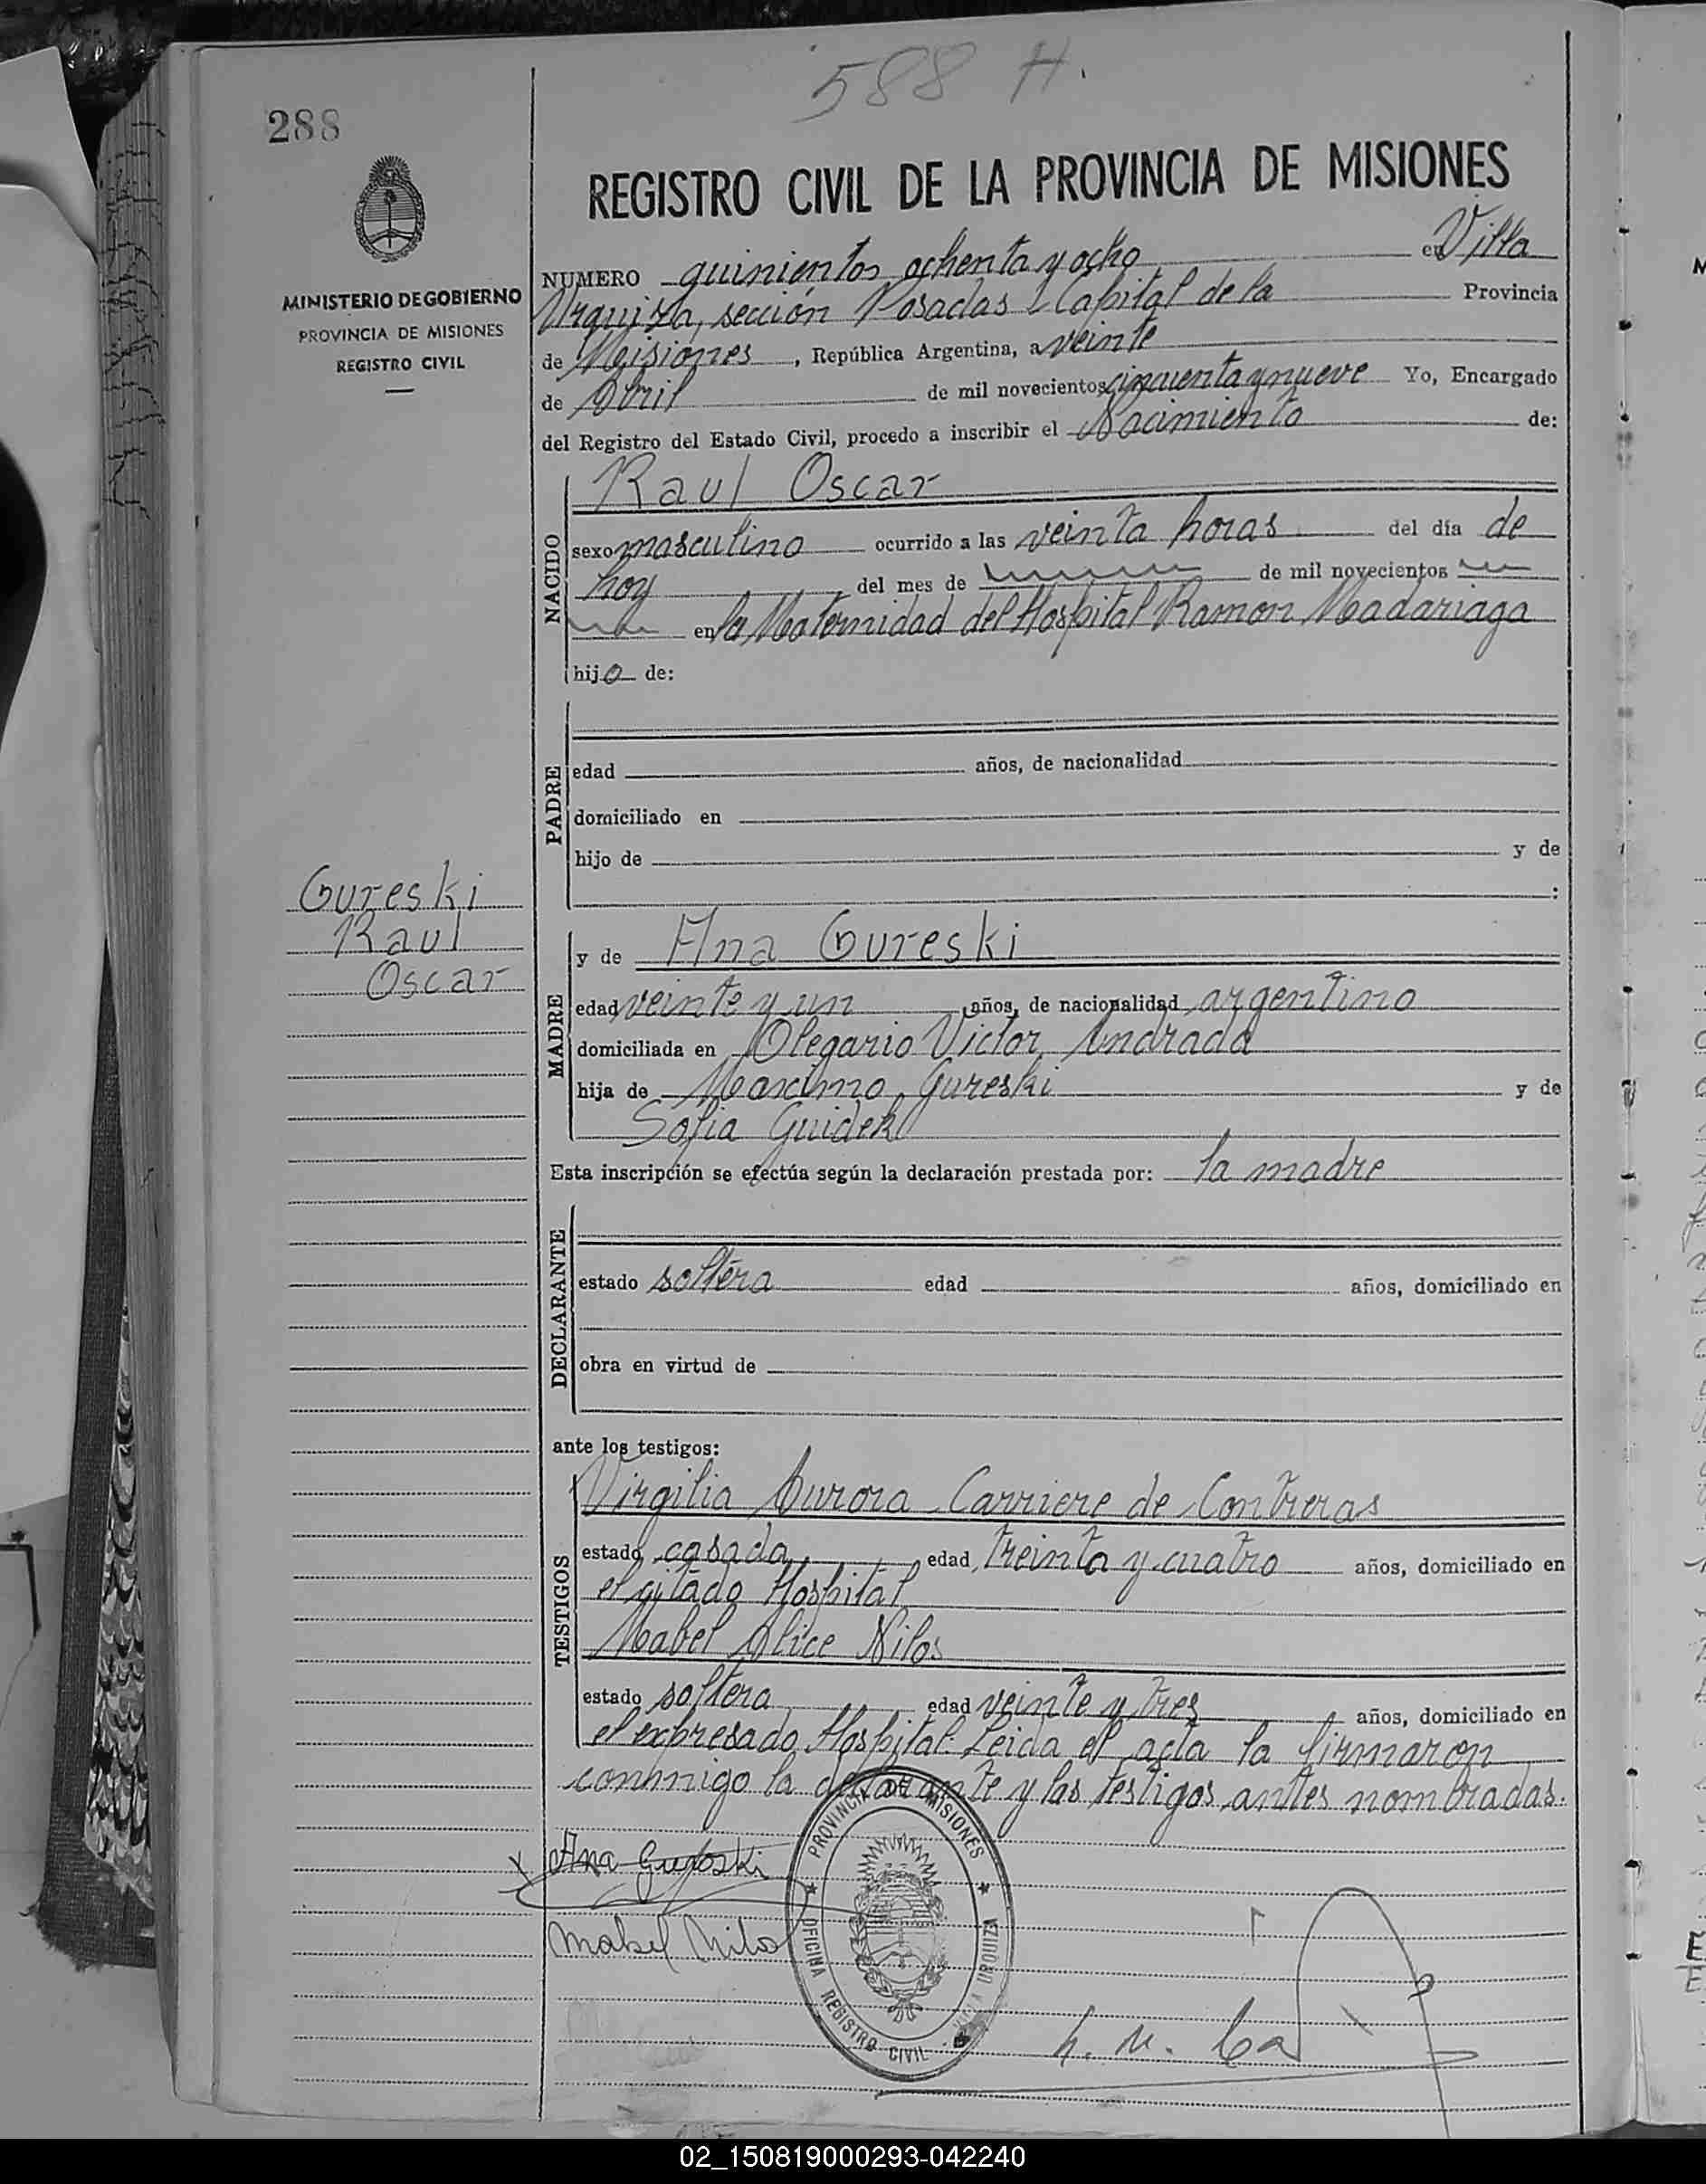 588 H.
288
REGISTRO CIVIL DE LA PROVINCIA DE MISIONES
MINISTERIO DE GOBIERNO
PROVINCIA DE MISIONES
REGISTRO CIVIL
NUMERO quinientos ochenta y ocho en Villa
Urquiza, sección Posadas Capital de la Provincia
de Misiones, República Argentina, a veinte
de Abril de mil novecientos cincuenta y nueve Yo, Encargado
del Registro del Estado Civil, procedo a inscribir el Nacimiento de:
NACIDO
Raul Oscar
sexo masculino ocurrido a las veinta horas del día de
hoy del mes de de mil novecientos
en la Maternidad del Hospital Ramon Madariaga
hijo de:
PADRE
edad años, de nacionalidad
domiciliado en
hijo de y de
:
Gureski
Raul
Oscar
MADRE
y de Ana Gureski
edad veinte y un años, de nacionalidad argentino
domiciliada en Olegario Victor Andrada
hija de Maximo Gureski y de
Sofia Guidek
Esta inscripción se efectúa según la declaración prestada por: la madre
DECLARANTE
estado soltera edad años, domiciliado en
obra en virtud de
ante los testigos:
TESTIGOS
Virgilia Aurora Carriere de Contreras
estado casada edad treinta y cuatro años, domiciliado en
el citado Hospital
Mabel Alice Nilos
estado soltera edad veinte y tres años, domiciliado en
el expresado Hospital. Leida el acta la firmaron
conmigo la declarante y las testigos antes nombradas.
Ana Gureski
Mabel Nilos
PROVINCIA DE MISIONES
OFICINA REGISTRO CIVIL
VILLA URQUIZA
02_150819000293-042240